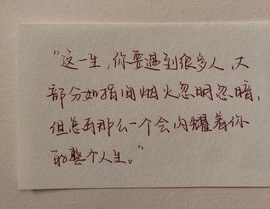 “这一生，你要遇到很多人，大
部分如指间烟火忽明忽暗，
但总有那么一个会闪耀着你
的整个人生。”